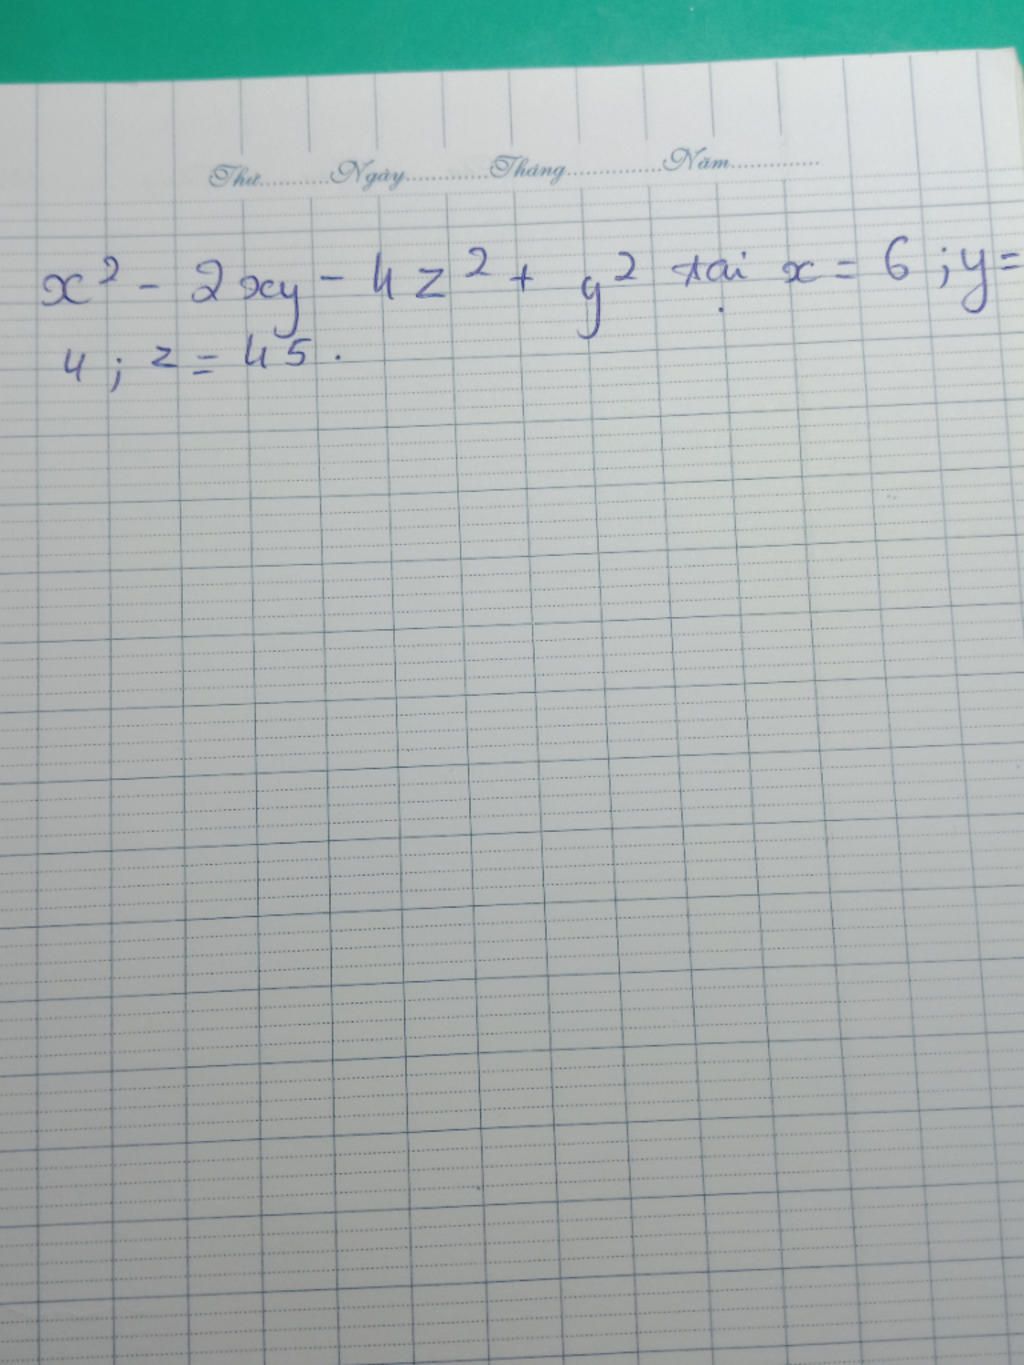 Thứ..........Ngày............Tháng..............Năm.............
x² - 2xy - 4z² + y² tại x = 6 ; y =
4 ; z = 45.